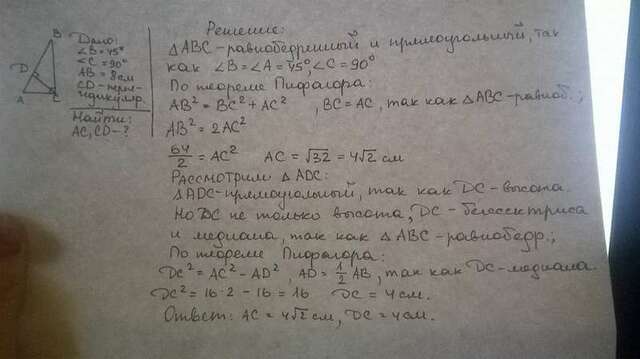 B
D
A
C
Дано:
∠B = 45°
∠C = 90°
AB = 8см
CD - перпендикуляр.
Найти:
AC, CD - ?
Решение:
△ABC - равнобедренный и прямоугольный, так
как ∠B = ∠A = 45°, ∠C = 90°
По теореме Пифагора:
AB² = BC² + AC² , BC = AC, так как △ABC - равноб.;
AB² = 2AC²
64/2 = AC² AC = √32 = 4√2 см
Рассмотрим △ADC:
△ADC - прямоугольный, так как DC - высота.
Но DC не только высота, DC - бессектриса
и медиана, так как △ABC - равнобедр.;
По теореме Пифагора:
DC² = AC² - AD², AD = 1/2 AB, так как DC - медиана.
DC² = 16·2 - 16 = 16 DC = 4 см.
Ответ: AC = 4√2 см, DC = 4 см.